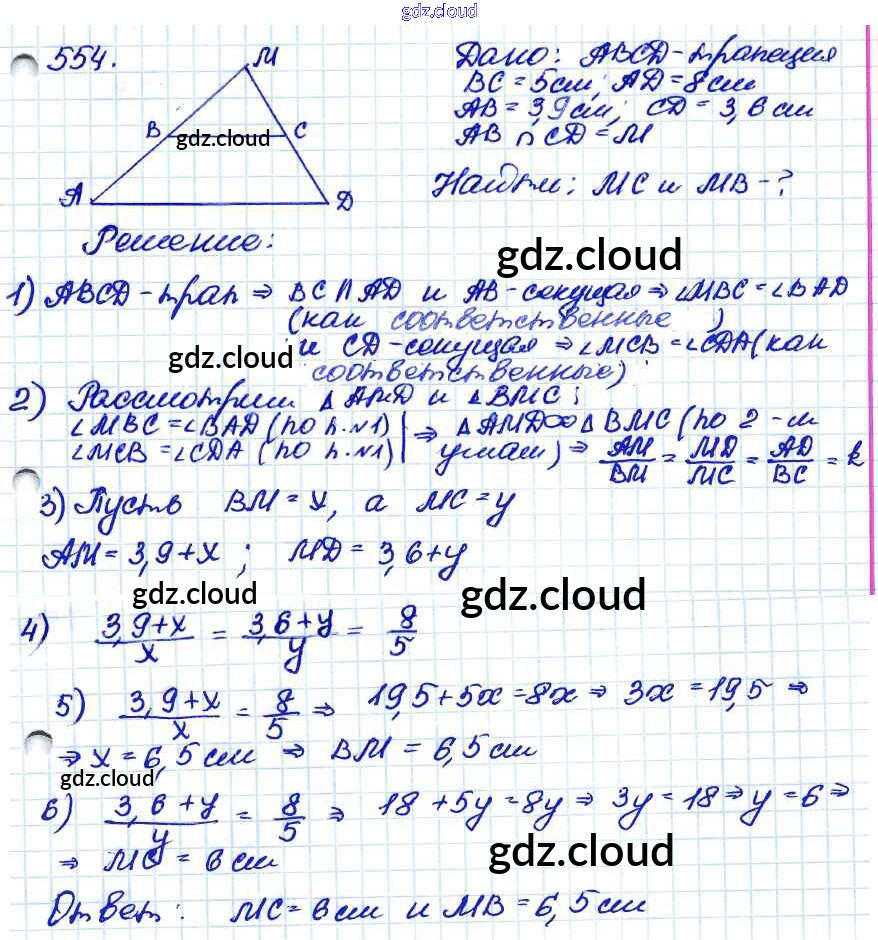 gdz.cloud
554.
M
B
C
gdz.cloud
A
D
Дано: ABCD - трапеция
BC = 5см; AD = 8см
AB = 3,9см; CD = 3,6см
AB ∩ CD = M
Найти: MC и MB - ?
Решение:
gdz.cloud
1) ABCD - трап ⇒ BC ∩ AD и AB - секущая ⇒ ∠MBC = ∠BAD
(как соответственные)
и CD - секущая ⇒ ∠MCB = ∠CDA (как
gdz.cloud
соответственные)
2) Рассмотрим △AMD и △BMC:
∠MBC = ∠BAD (по п.№1) | ⇒ △AMD ∞ △BMC (по 2-м
∠MCB = ∠CDA (по п.№1) | углам) ⇒ AM/BM = MD/MC = AD/BC = k
3) Пусть BM = x, а MC = y
AM = 3,9 + x; MD = 3,6 + y
gdz.cloud
gdz.cloud
4) (3,9+x)/x = (3,6+y)/y = 8/5
5) (3,9+x)/x = 8/5 ⇒ 19,5 + 5x = 8x ⇒ 3x = 19,5 ⇒
⇒ x = 6,5см ⇒ BM = 6,5см
gdz.cloud
6) (3,6+y)/y = 8/5 ⇒ 18 + 5y = 8y ⇒ 3y = 18 ⇒ y = 6 ⇒
⇒ MC = 6см
gdz.cloud
Ответ: MC = 6см и MB = 6,5см